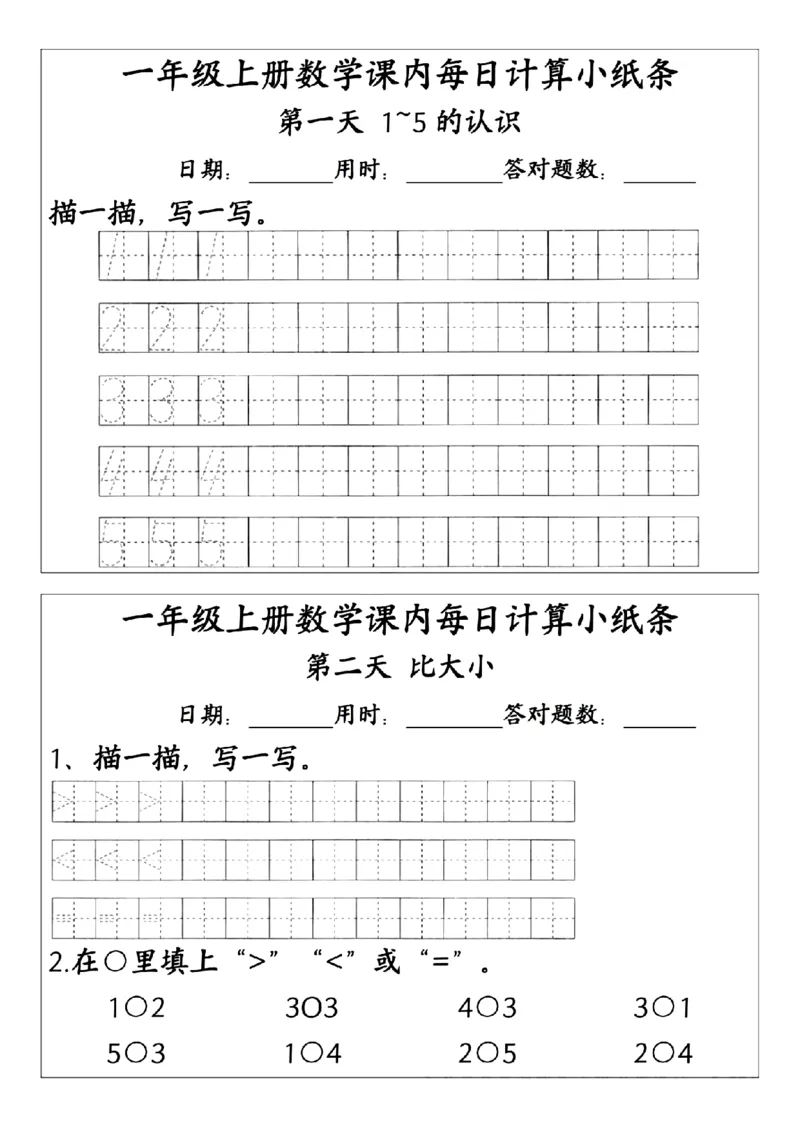 一年级上册数学课内每日计算小纸条
第一天 1~5的认识
日期：______用时：______答对题数：______
描一描，写一写。
1 1 1
2 2 2
3 3 3
4 4 4
5 5 5
一年级上册数学课内每日计算小纸条
第二天 比大小
日期：______用时：______答对题数：______
1、描一描，写一写。
> > >
< < <
= = =
2.在○里填上“>”“<”或“=”。
1○2 3○3 4○3 3○1
5○3 1○4 2○5 2○4